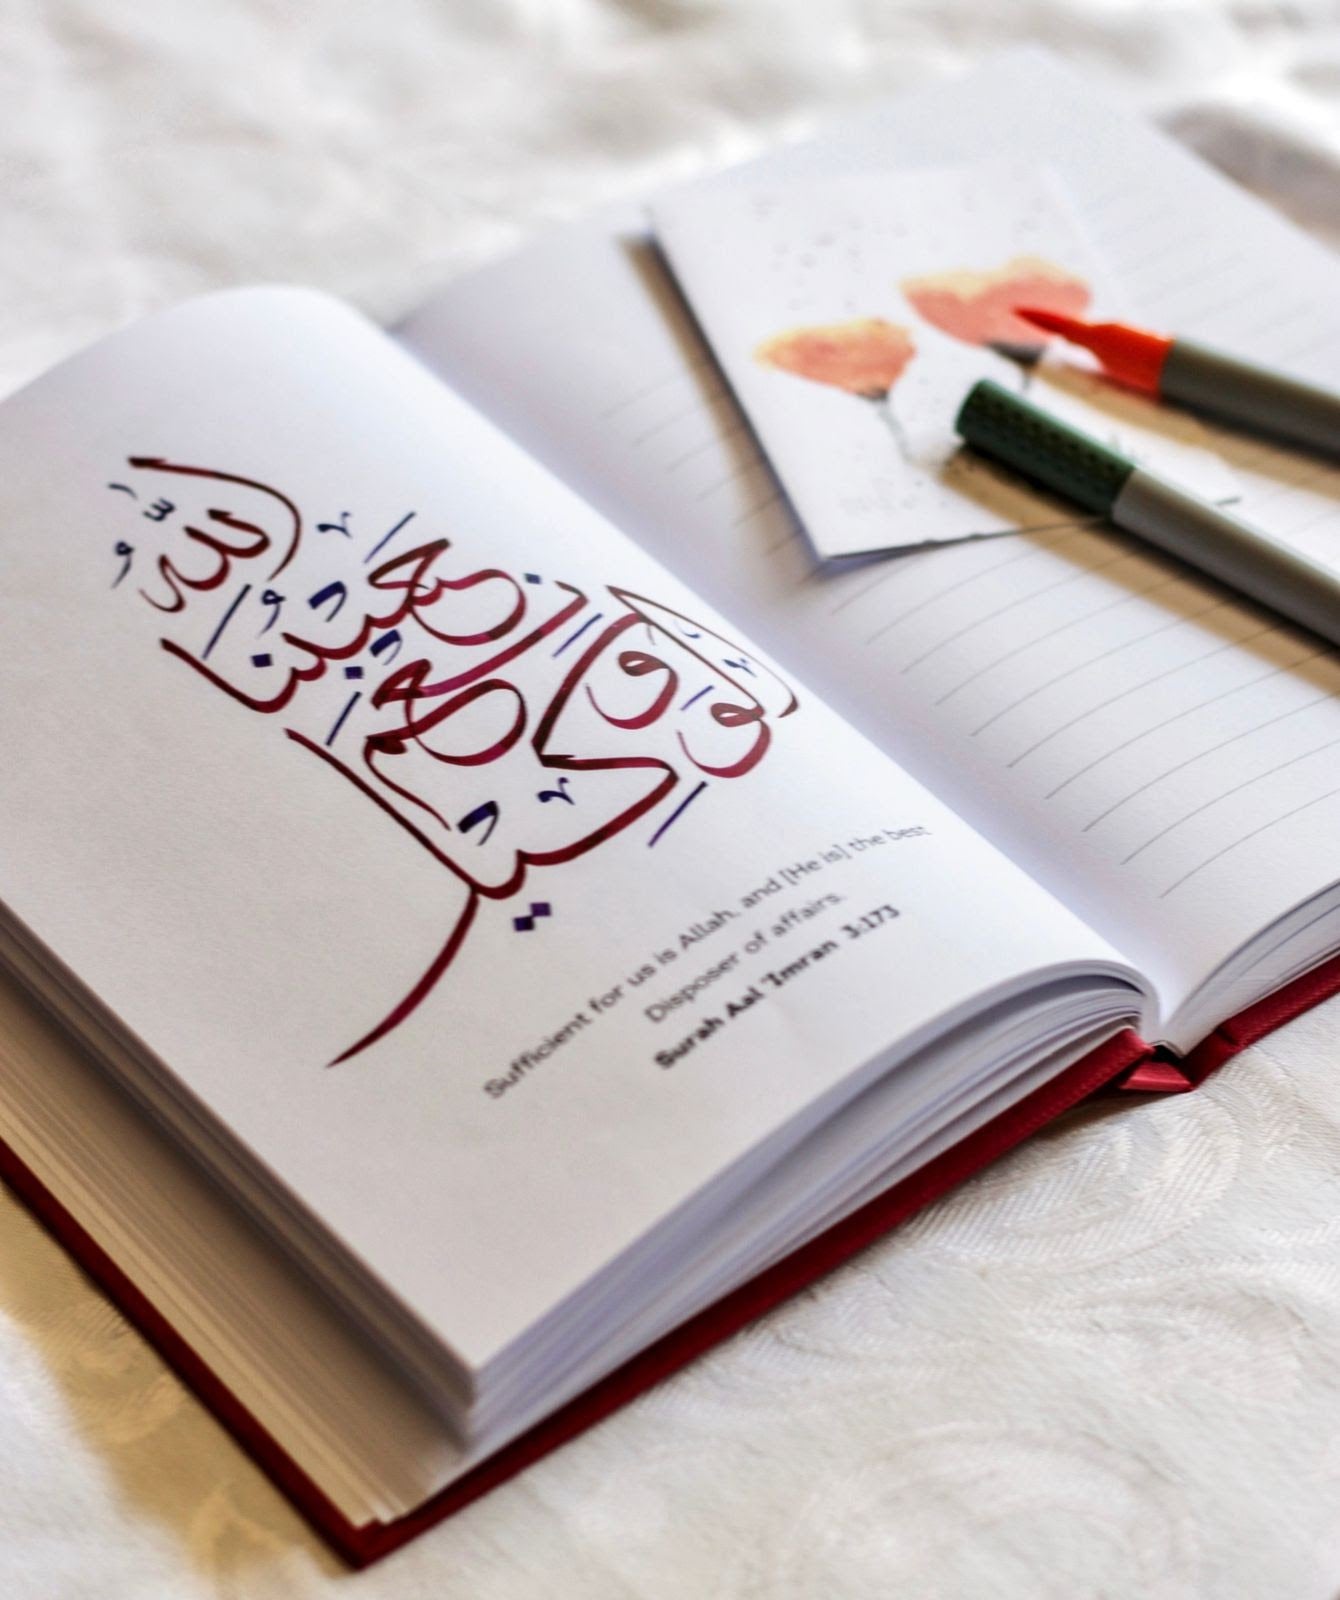 حَسْبُنَا اللَّهُ
وَنِعْمَ
الْوَكِيلُ
Sufficient for us is Allah, and [He is] the best
Disposer of affairs.
Surah Aal 'Imran 3:173